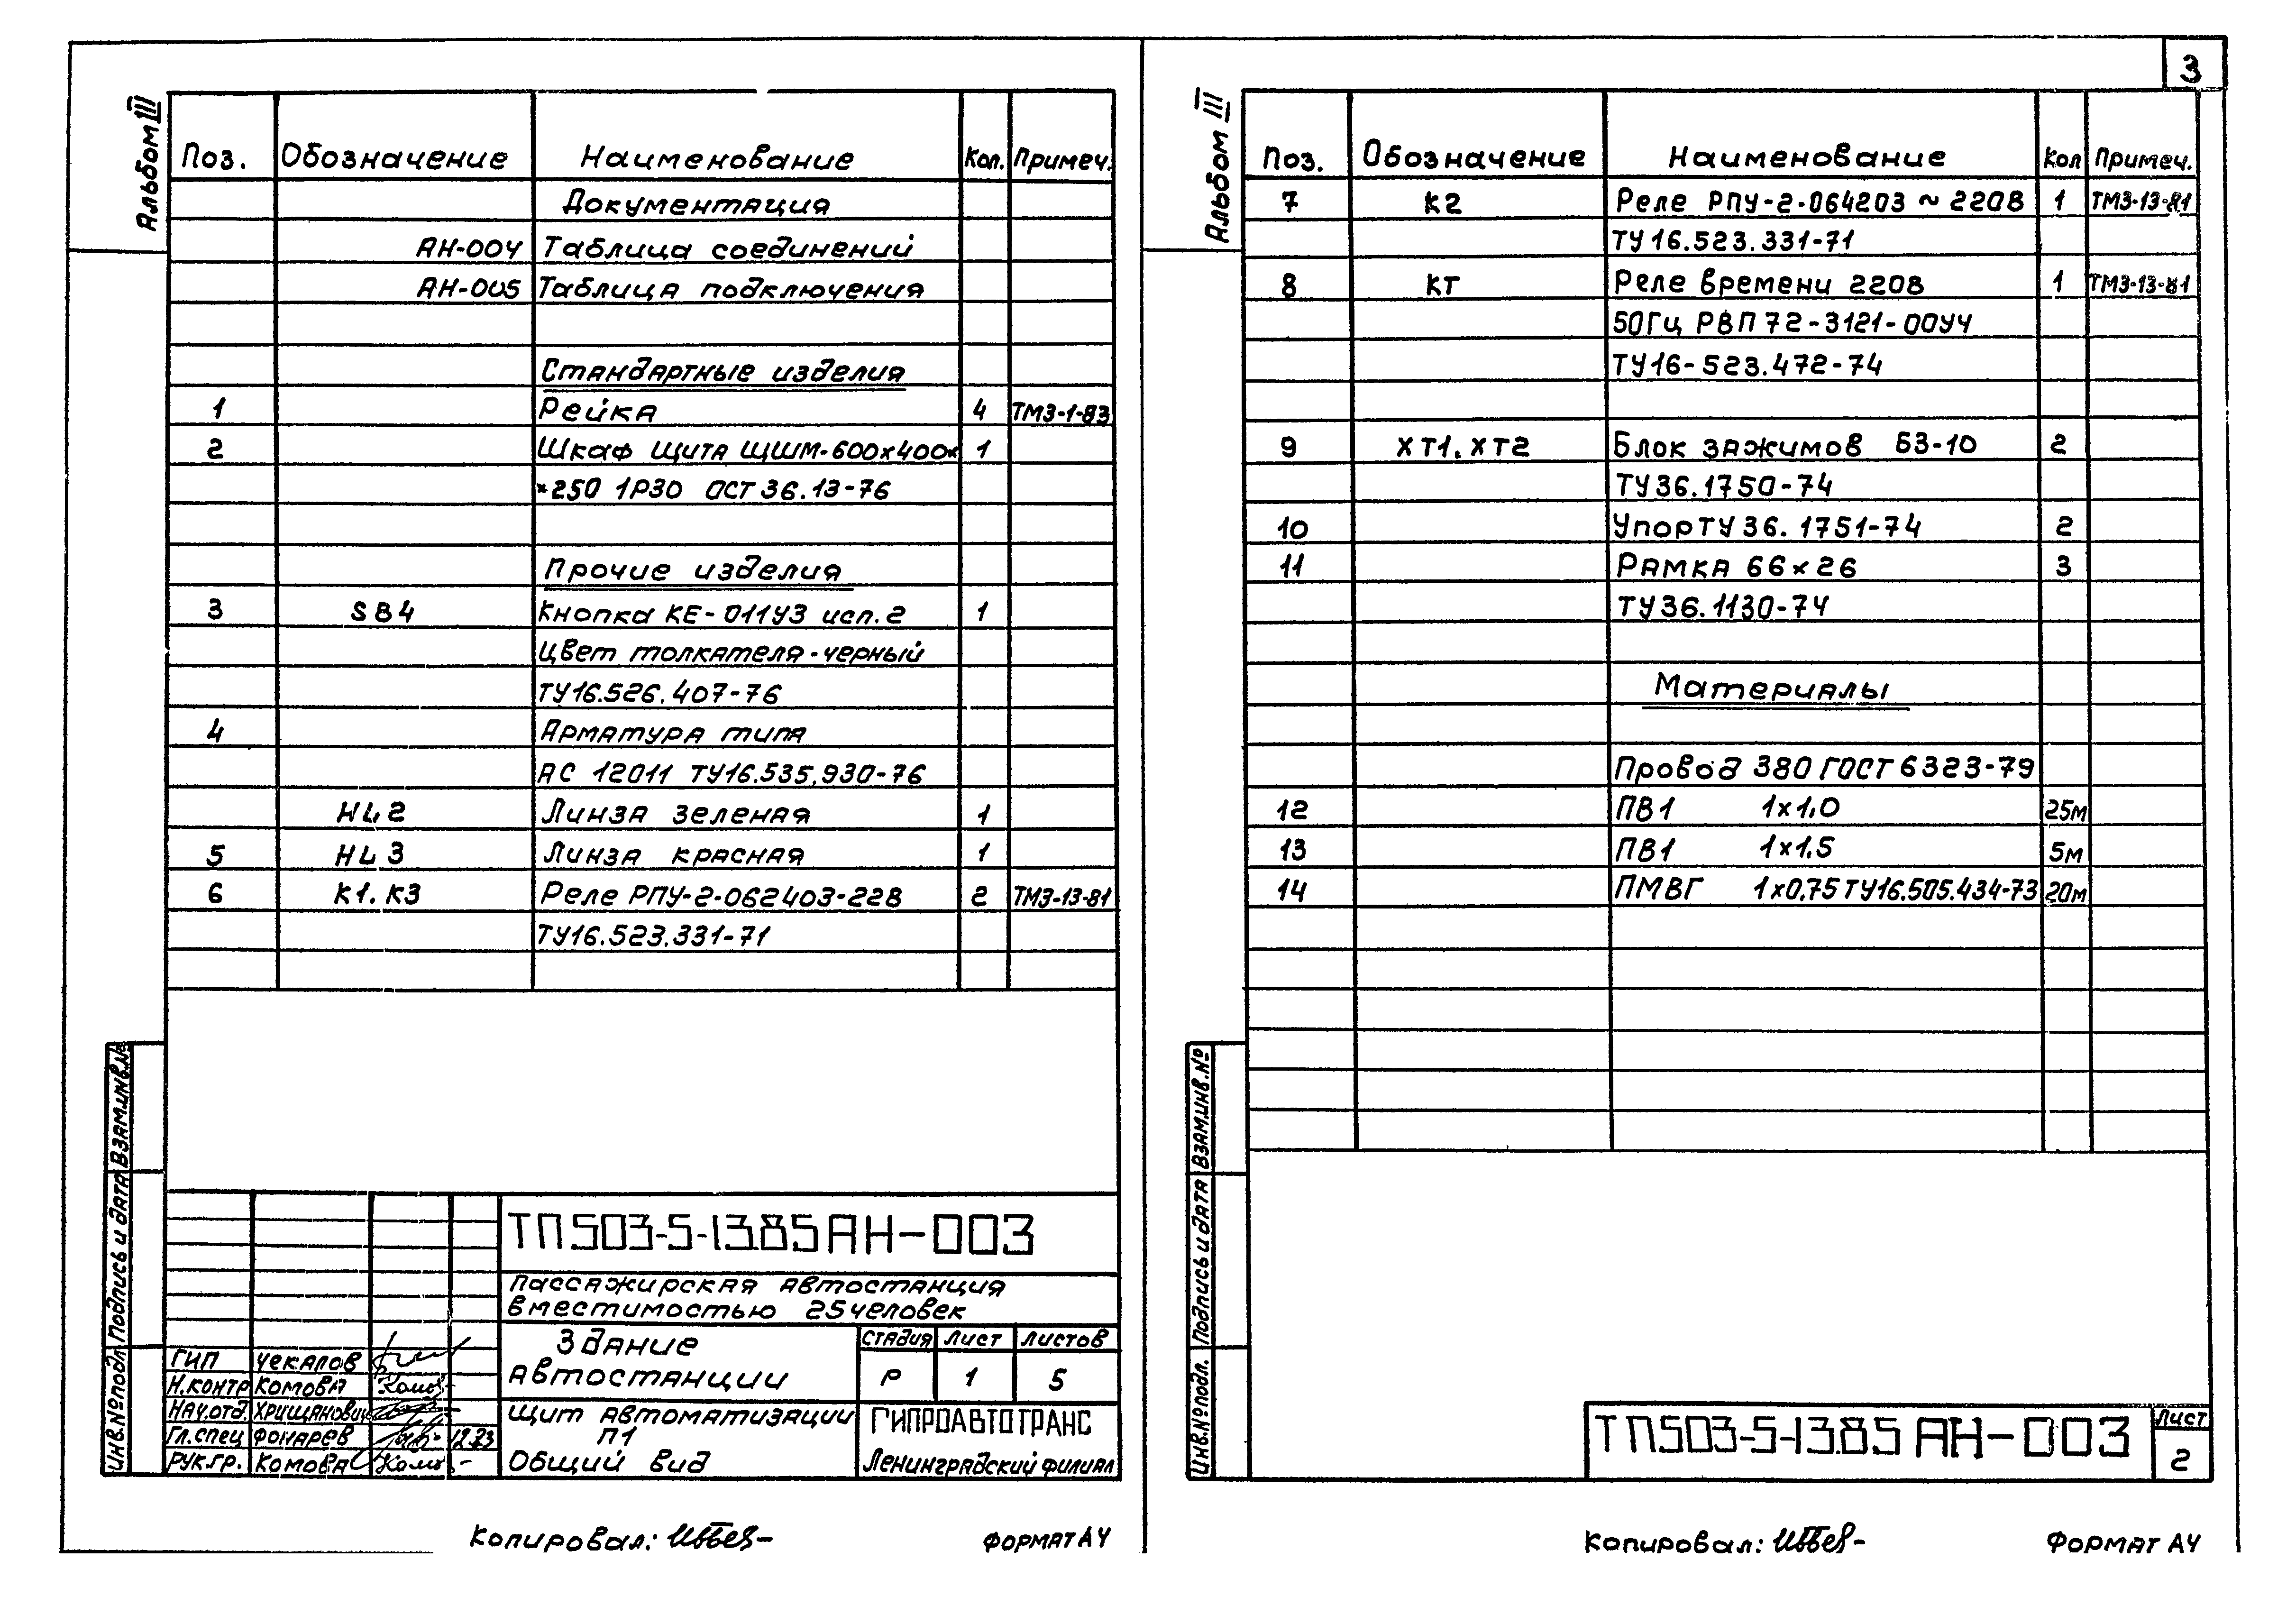 3
Альбом III
Поз. Обозначение Наименование Кол. Примеч.
Документация
АН-004 Таблица соединений
АН-005 Таблица подключения
Стандартные изделия
1 Рейка 4 ТМ3-1-83
2 Шкаф щита ЩШМ-600х400х 1
х250 1Р30 ОСТ 36.13-76
Прочие изделия
3 SB4 Кнопка КЕ-011У3 исп.2 1
Цвет толкателя-черный
ТУ16.526.407-76
4 Арматура типа
АС 12011 ТУ16.535.930-76
HL2 Линза зеленая 1
5 HL3 Линза красная 1
6 К1. К3 Реле РПУ-2-062403-22В 2 ТМ3-13-81
ТУ16.523.331-71
Взам.инв.№
Подпись и дата
Инв.№подл.
ТП503-5-13.85 АН-003
Пассажирская автостанция
вместимостью 25 человек
Здание
автостанции
Стадия Лист Листов
Р 1 5
ГИП Чекалов
Н.контр Комова
Нач.отд. Хрищанович
Гл.спец Фонарев
Рук.гр. Комова
Щит автоматизации
П1
Общий вид
ГИПРОАВТОТРАНС
Ленинградский филиал
Копировал:
Формат А4
Альбом III
Поз. Обозначение Наименование Кол Примеч.
7 К2 Реле РПУ-2-064203 ~ 220В 1 ТМ3-13-81
ТУ16.523.331-71
8 КТ Реле времени 220В 1 ТМ3-13-81
50Гц РВП 72-3121-00У4
ТУ16-523.472-74
9 ХТ1. ХТ2 Блок зажимов БЗ-10 2
ТУ36.1750-74
10 Упор ТУ 36.1751-74 2
11 Рамка 66х26 3
ТУ36.1130-74
Материалы
Провод 380 ГОСТ 6323-79
12 ПВ1 1х1.0 25м
13 ПВ1 1х1.5 5м
14 ПМВГ 1х0,75 ТУ16.505.434-73 20м
Взам.инв.№
Подпись и дата
Инв.№подл.
ТП503-5-13.85 АН-003
Лист
2
Копировал:
Формат А4